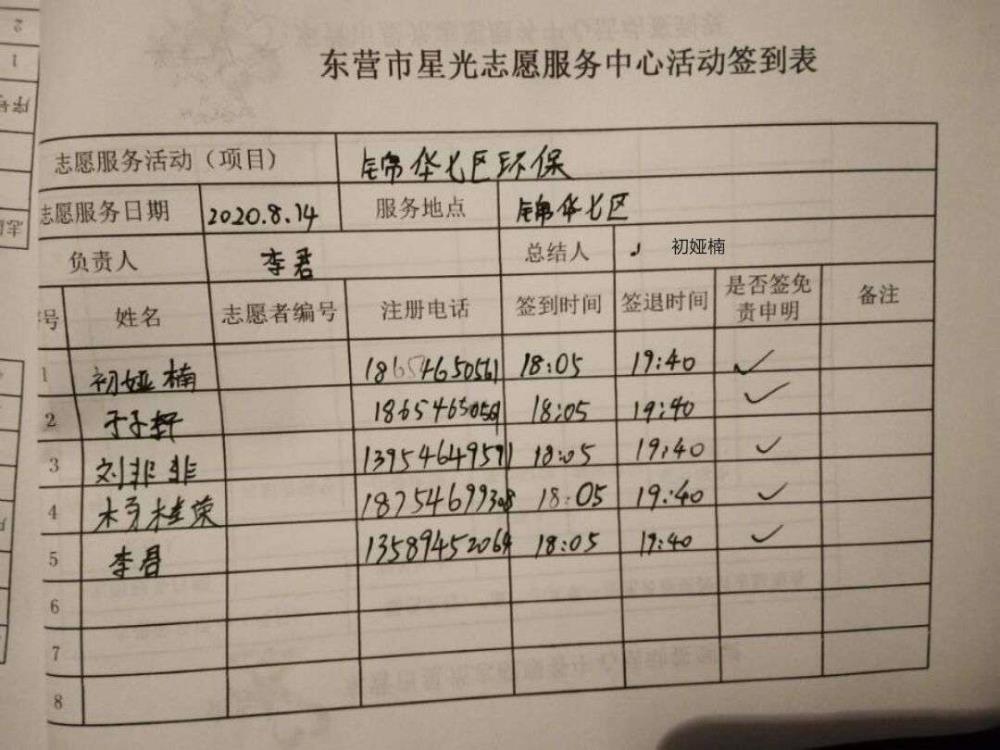 东营市星光志愿服务中心活动签到表
志愿服务活动（项目） 锦华七区环保
志愿服务日期 2020.8.14 服务地点 锦华七区
负责人 李君 总结人 初娅楠
序号 姓名 志愿者编号 注册电话 签到时间 签退时间 是否签免责申明 备注
1 初娅楠 18654650561 18:05 19:40 ✓
2 于子轩 1865465056 18:05 19:40 ✓
3 刘非非 13954649591 18:05 19:40 ✓
4 桂荣 18754699308 18:05 19:40 ✓
5 李君 13589452064 18:05 19:40 ✓
6
7
8